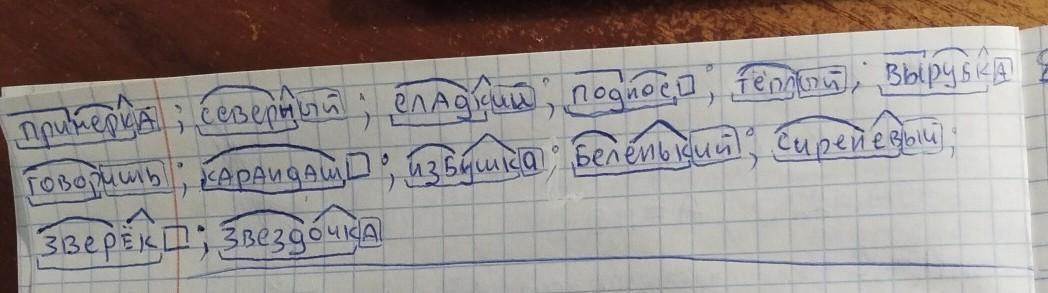 примерка; северный; сладкий; поднос; тёплый; вырубка
говоришь; карандаш; избушка; беленький; сиреневый;
зверёк; звездочка